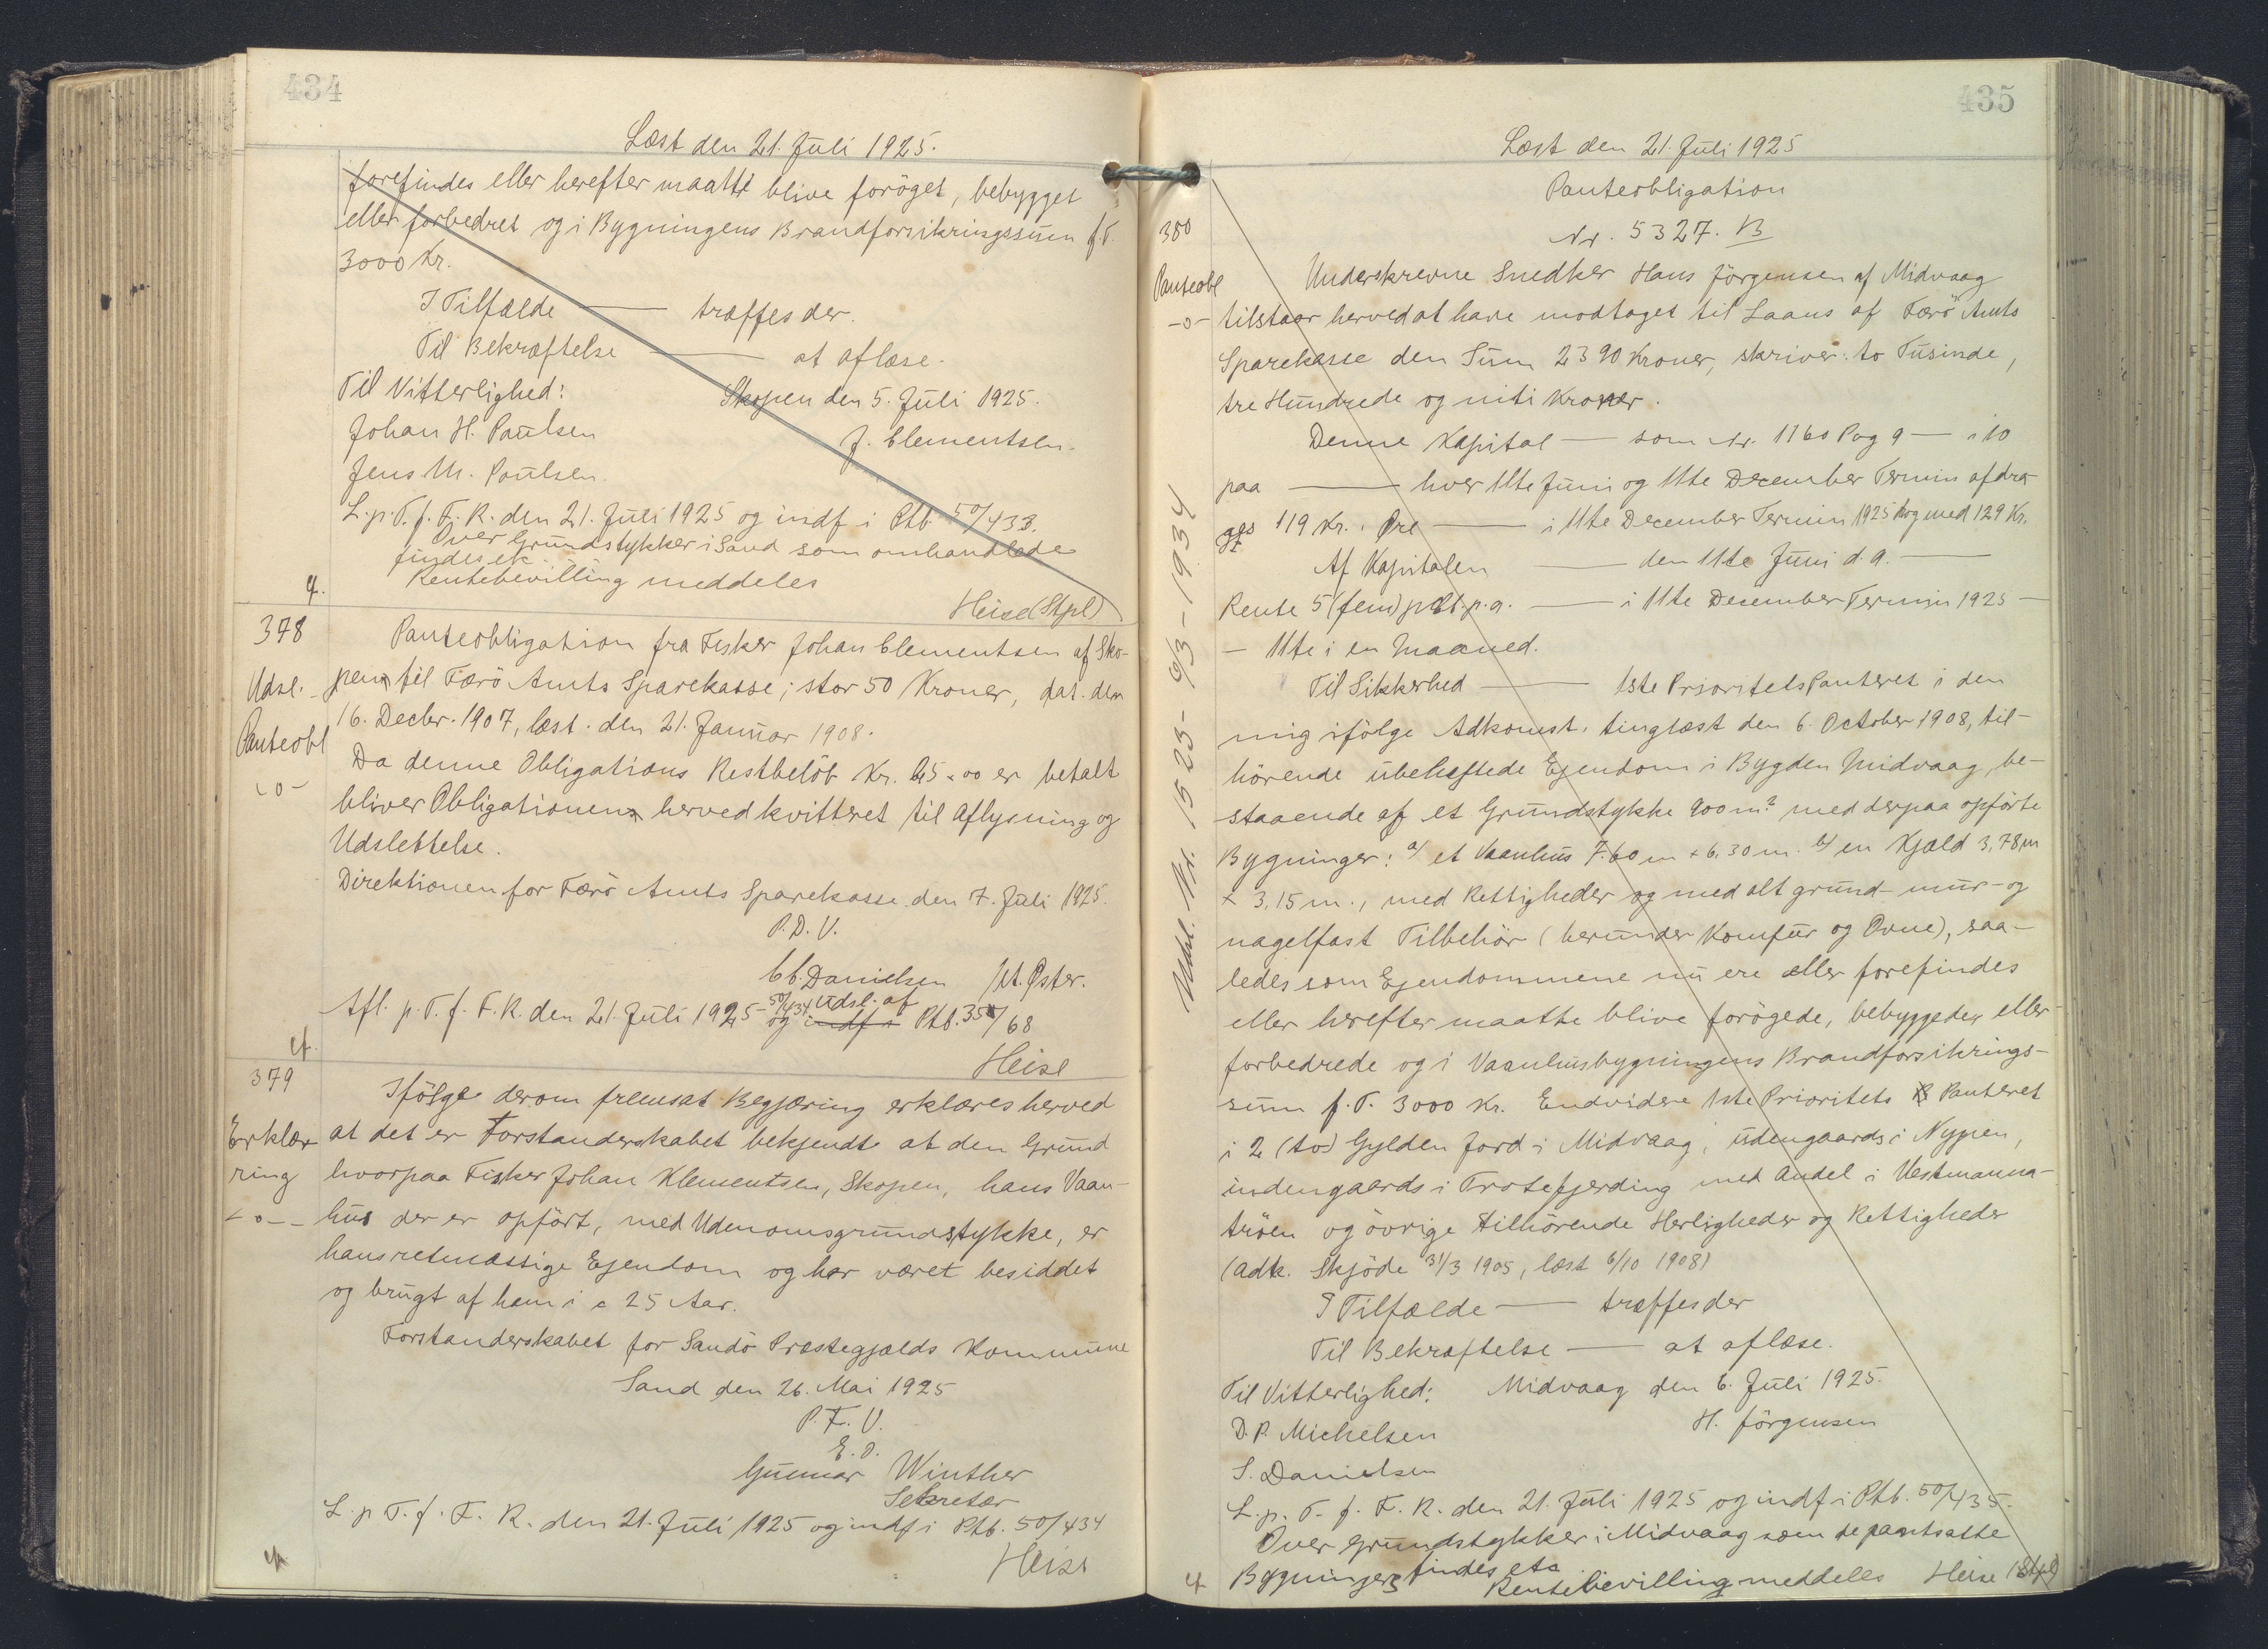 434
Læst den 21. Juli 1925.
forefindes eller herefter maatte blive forøget, bebygget
eller forbedret og i Bygningens Brandforsikringssum f.T.
3000 Kr.
I Tilfælde — træffes der.
Til Bekræftelse — at aflæse.
Til Vitterlighed: Skopen den 5. Juli 1925.
Johan H. Paulsen J. Clementsen.
Jens M. Poulsen.
L.p.T.f.F.R. den 21. Juli 1925 og indf i Ptb 50/433.
Over Grundstykker i Sand som omhandlede
findes ek
Rentebevilling meddeles
Heise (Stpl)
378
Udsl.
Panteobl
-o-
Panteobligation fra Fisker Johan Clementsen af Sko-
pen til Færø Amts Sparekasse, stor 50 Kroner, dat. den
16. Decbr. 1907, læst. den 21. Januar 1908.
Da denne Obligations Restbeløb Kr. 25.00 er betalt
bliver Obligationen herved kvitteret til Aflysning og
Udslettelse.
Direktionen for Færö Amts Sparekasse den 7. Juli 1925.
P.D.V.
C.C. Danielsen M. Øster.
Afl. p.T.f.F.R. den 21. Juli 1925 - 50/434 udsl. af
og indf i Ptb. 35/68
Heise
cf.
379
Erklæ-
ring
-o-
Ifølge derom fremsat Begjæring erklæres herved
at det er Forstanderskabet bekjendt at den Grund
hvorpaa Fisker Johan Klementsen, Skopen, hans Vaan-
hus der er opført, med Udenomsgrundstykke, er
hans retmæssige Ejendom og har været besiddet
og brugt af ham i c 25 Aar.
Forstanderskabet for Sandö Præstegjælds Kommune
Sand den 26. Mai 1925
P.F.V.
E.O.
Gunnar Winther
Sekretær
L.p.T.f.F.R. den 21. Juli 1925 og indf i Ptb. 50/434
Heise
cf.
435
Læst den 21. Juli 1925
Panteobligation
Nr. 5327. B
380
Panteobl
-o-
Underskrevne Snedker Hans Jörgensen af Midvaag
tilstaar herved at have modtaget til Laans af Færö Amts
Sparekasse den Sum 2390 Kroner, skriver to Tusinde,
tre Hundrede og niti Kroner.
Denne Kapital — som Nr. 1160 Pag 9 — i 10
paa — hver 11te Juni og 11te December Termin afdra-
ges 119 Kr. Øre — i 11te December Termin 1925 og med 129 Kr.
Af Kapitalen — den 11te Juni d.A. —
Rente 5 (fem) pCt. p.a. — i 11te December Termin 1925 —
— 11te i en Maaned.
Til Sikkerhed — 1ste Prioritets Panteret i den
mig ifølge Adkomst, tinglæst den 6. October 1908, til-
hörende ubeheftede Ejendom i Bygden Midvaag, be-
staaende af et Grundstykke 900 m² med derpaa opførte
Bygninger: a/ et Vaanhus 7.60 m x 6,30 m. b/ en Kjæld 3,78 m
x 3,15 m., med Rettigheder og med alt grund- mur- og
nagelfast Tilbehör (herunder Komfur og Ovne), saa-
ledes som Ejendommene nu ere eller forefindes
eller herefter maatte blive forögede, bebyggede, eller
forbedrede og i Vaanhusbygningens Brandforsikrings-
sum f.T. 3000 Kr. Endvidere 1ste Prioritets Panteret
i 2 (to) Gylden Jord i Midvaag, udengaards i Nypen,
indengaards i Trotefjerding med Andel i Vestmanna-
tröen og øvrige tilhörende Herligheder og Rettigheder
(adk. Skjöde 31/3 1905, læst 6/10 1908)
I Tilfælde — træffes der
Til Bekræftelse — at aflæse.
Til Vitterlighed: Midvaag den 6. Juli 1925.
D.P. Michelsen H. Jörgensen
S. Danielsen
L.p.T.f.F.R. den 21. Juli 1925 og indf i Ptb. 50/435.
Over Grundstykker i Midvaag som de pantsatte
Bygninger findes etc
Rentebevilling meddeles Heise (Stpl)
cf
Udsl. Nr. 1525 - 9/3 - 1934